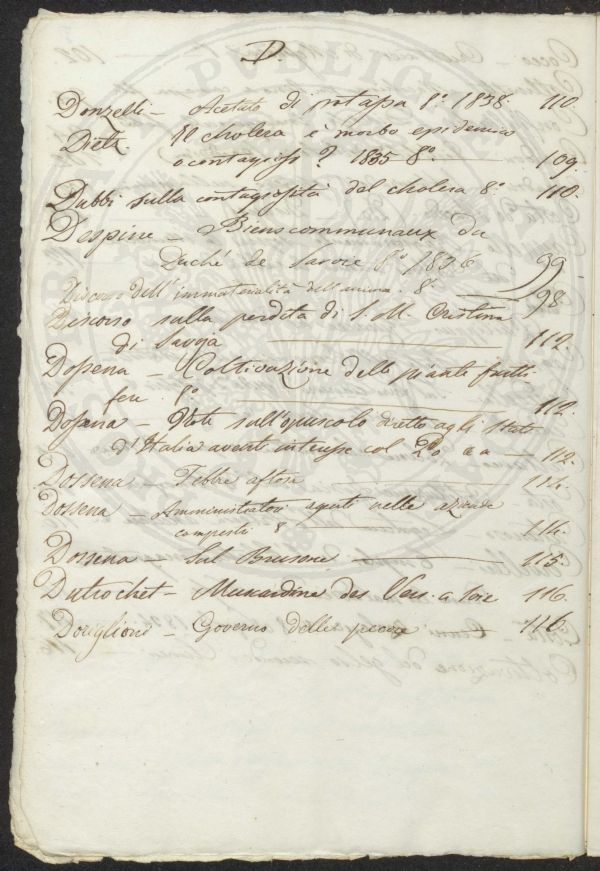 D
Donzelli - Acetato di potassa 8º. 1838. 110.
Dietz. Il cholera è morbo epidemico
o contagioso? 1835 8º. 109.
Dubbi sulla contagiosità del cholera 8º. 110.
Despine - Biens communaux du
Duché de Savoie 8º 1836. 99
Discorso dell'immaterialità dell'anima. 8º. 98.
Discorso sulla perdita di S. M. Cristina
di Savoja 112.
Dossena - Coltivazione delle piante frutti-
fere. 8º 112.
Dossena - Note sull'opuscolo diretto agli Stati
d'Italia aventi interesse col 112.
Dossena - Febbre aftosa 114.
Dossena - Amministratori agenti nelle aziende
composti 8 114.
Dossena - Sul Brusone 115.
Dutrochet - Muscardine des Vers a soie 116.
Doviglioni - Governo delle pecore 116.
PUBLIC